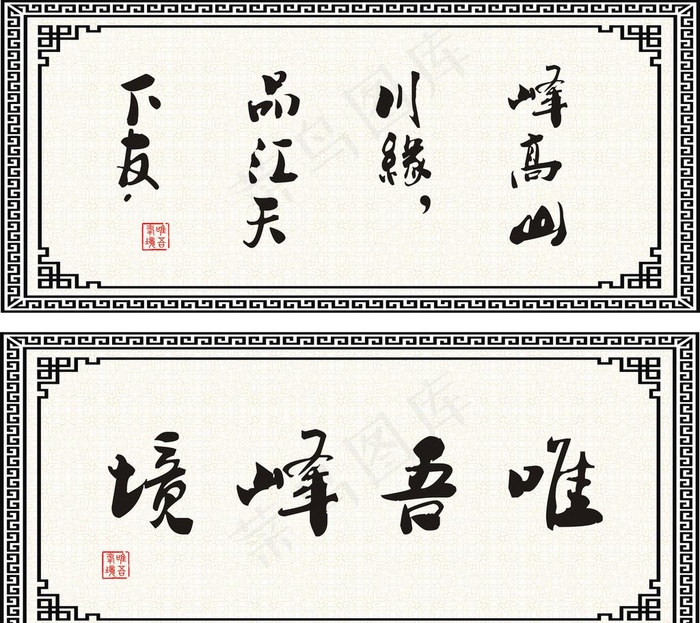 峰高山
川緣，
品江天
下友.
唯吾
峰境
唯吾峰境
唯吾
峰境
菜鸟图库
菜鸟图库